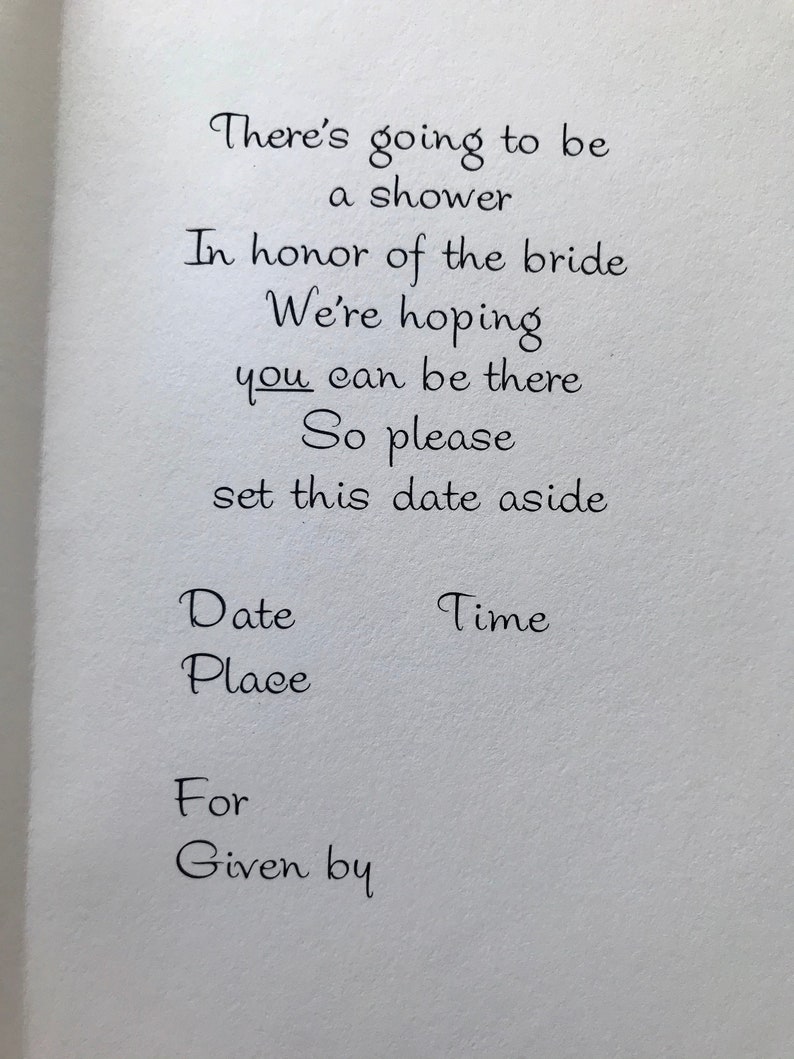 There's going to be
a shower
In honor of the bride
We're hoping
you can be there
So please
set this date aside
Date Time
Place
For
Given by